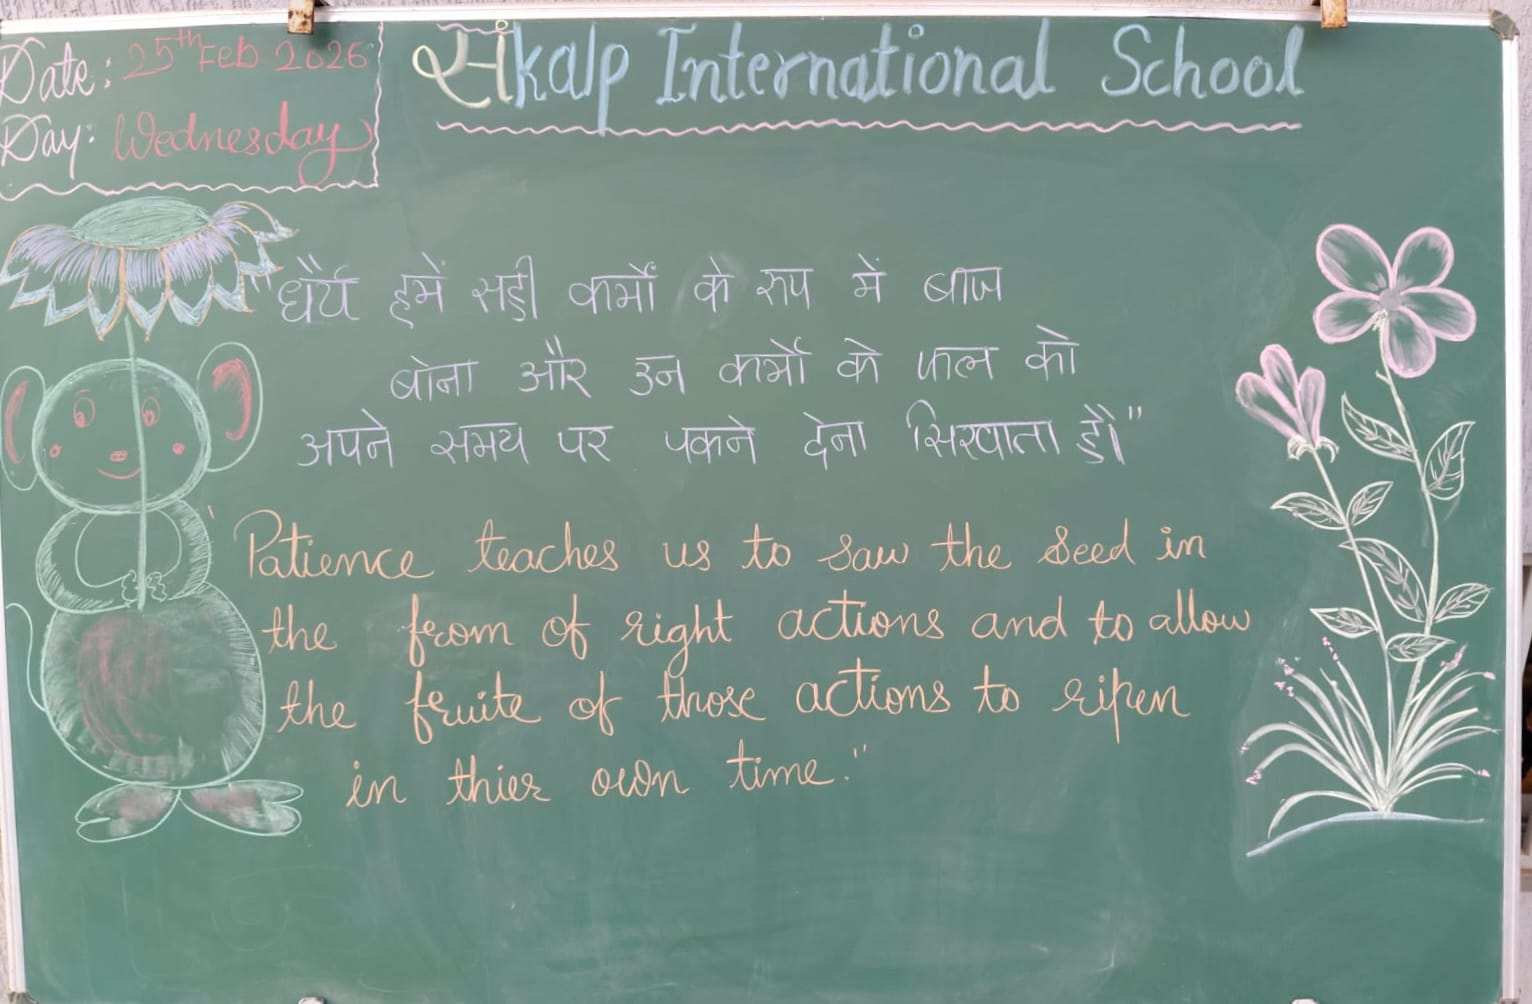 Date: 25th Feb 2026
Day: Wednesday
संkalp International School
"धैर्य हमें सही कर्मों के रुप में बीज
बोना और उन कर्मों के फल को
अपने समय पर पकने देना सिखाता है।"
'Patience teaches us to saw the seed in
the from of right actions and to allow
the fruite of those actions to ripen
in thier own time."